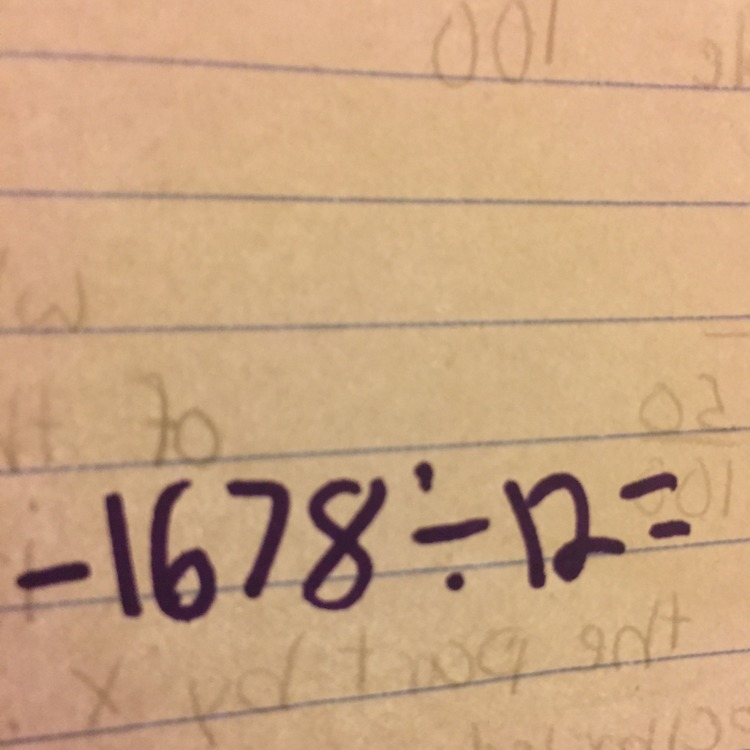 -1678÷12=